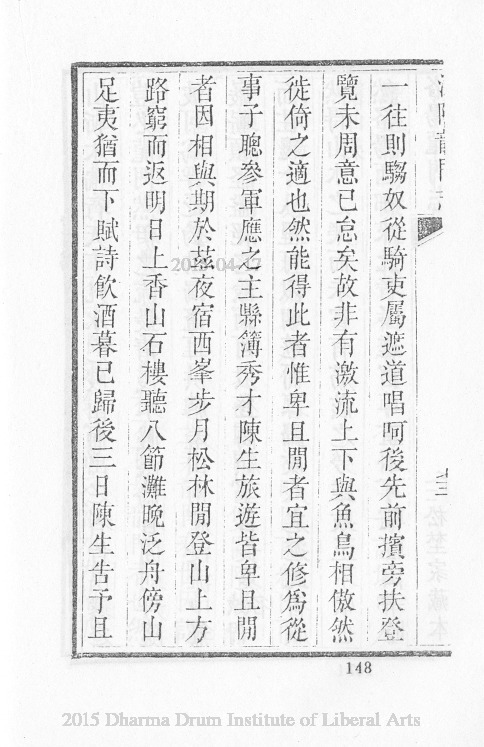 一往則騶奴從騎吏屬遮道唱呵後先前擯旁扶登
覽未周意已怠矣故非有激流上下與魚鳥相傲然
徙倚之適也然能得此者惟卑且閒者宜之修爲從
事子聰參軍應之主縣簿秀才陳生旅遊皆卑且閒
者因相與期於茲夜宿西峯步月松林閒登山上方
路窮而返明日上香山石樓聽八節灘晚泛舟傍山
足夷猶而下賦詩飲酒暮已歸後三日陳生告予且
148
2015 Dharma Drum Institute of Liberal Arts